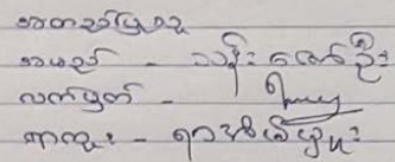 အတည်ပြုသူ
အမည် - သန်းဇော်ဦး
လက်မှတ် -
ရာထူး - ရာအိမ်မှူး